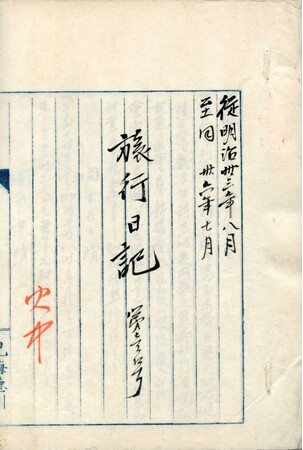 従明治卅三年八月
至同 卅六年七月
旅行日記
火中